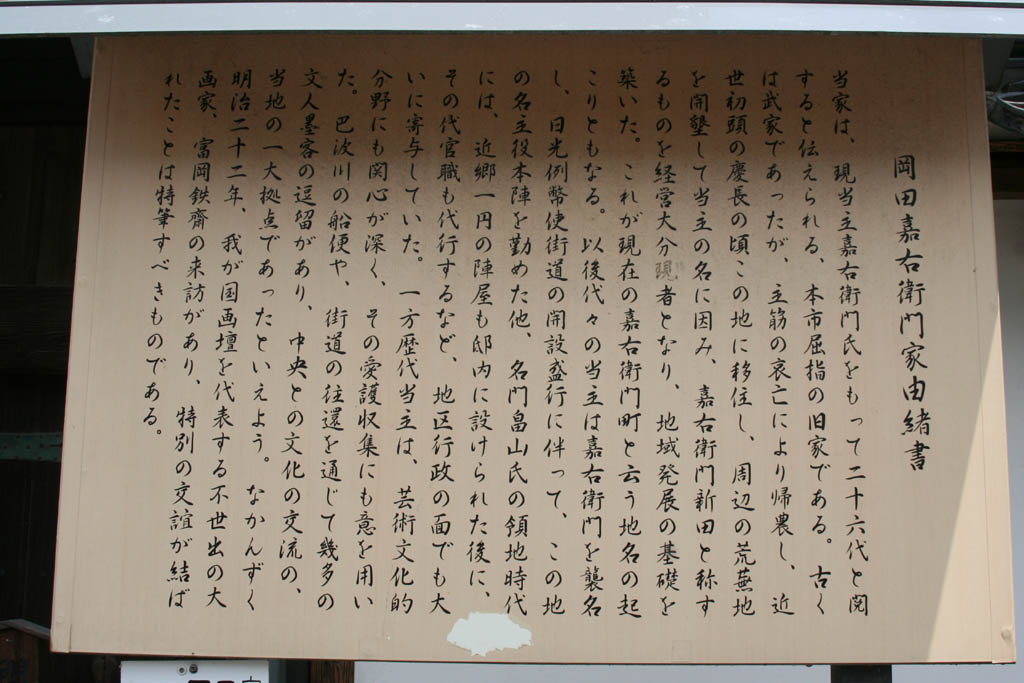 岡田嘉右衛門家由緒書
当家は、現当主嘉右衛門氏をもって二十六代と閲
すると伝えられる、本市屈指の旧家である。古く
は武家であったが、主筋の哀亡により帰農し、近
世初頭の慶長の頃この地に移住し、周辺の荒蕪地
を開墾して当主の名に因み、嘉右衛門新田と称す
るものを経営大分現者となり、地域発展の基礎を
築いた。これが現在の嘉右衛門町と云う地名の起
こりともなる。以後代々の当主は嘉右衛門を襲名
し、日光例幣使街道の開設盛行に伴って、この地
の名主役本陣を勤めた他、名門畠山氏の領地時代
には、近郷一円の陣屋も邸内に設けられた後に、
その代官職も代行するなど、地区行政の面でも大
いに寄与していた。一方歴代当主は、芸術文化的
分野にも関心が深く、その愛護収集にも意を用い
た。巴波川の船便や、街道の往還を通じて幾多の
文人墨客の逗留があり、中央との文化の交流の、
当地の一大拠点であったといえよう。なかんずく
明治二十二年、我が国画壇を代表する不世出の大
画家、富岡鉄齋の来訪があり、特別の交誼が結ば
れたことは特筆すべきものである。